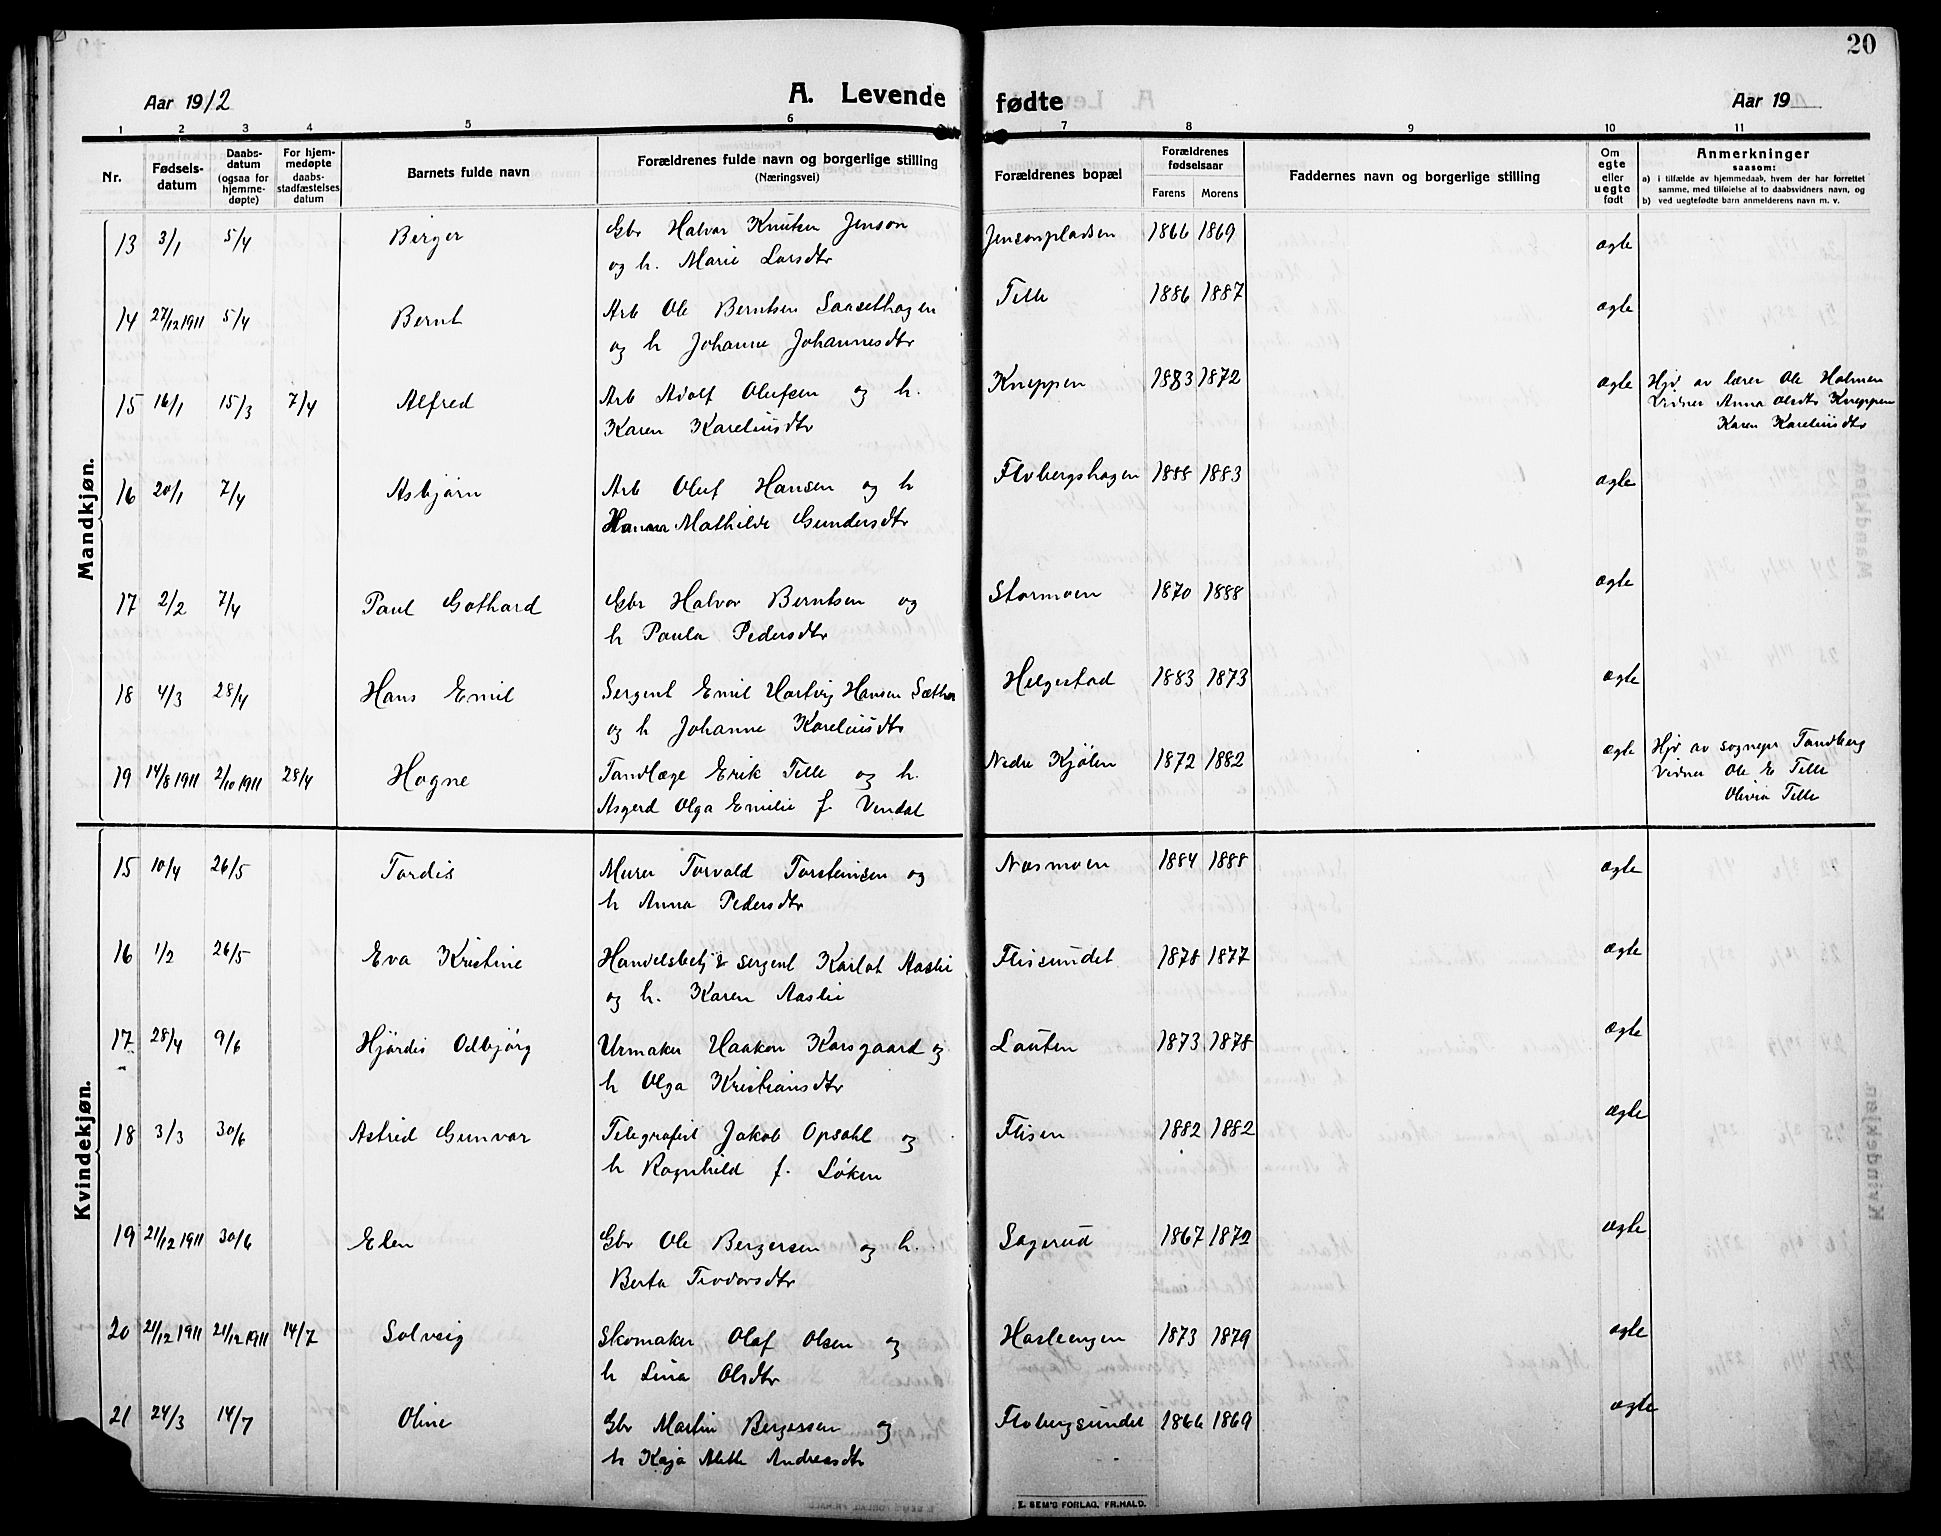 20
Aar 1912
A. Levende fødte
Aar 19
1 2 3 4 5 6 7 8 9 10 11
Nr.
Fødsels-
datum
Daabs-
datum
(ogsaa for
hjemme-
døpte)
For hjem-
medøpte
daabs-
stadfæstelses
datum
Barnets fulde navn
Forældrenes fulde navn og borgerlige stilling
(Næringsvei)
Forældrenes bopæl
Forældrenes
fødselsaar
Farens Morens
Faddernes navn og borgerlige stilling
Om
egte
eller
uegte
født
Anmerkninger
saasom:
a) i tilfælde av hjemmedaab, hvem der har forrettet
samme, med tilføielse af to daabsvidners navn, og
b) ved uegtefødte barn anmelderens navn m. v.
Mandkjøn.
13 3/1 5/4 Berger Gbr Halvor Knutsen Jenson Jensonpladsen 1866 1869 ægte
og h. Marie Larsdtr
14 27/12 1911 5/4 Bernt Arb Ole Berntsen Saasethagen Telle 1886 1887 ægte
og h Johanne Johannesdtr
15 16/1 15/3 7/4 Alfred Arb Adolf Olufsen og h. Kneppen 1883 1872 ægte Hjd av lærer Ole Holmen
Karen Kareliusdtr Vidner Anna Olsdtr Kneppen
Karen Kareliusdtr
16 20/1 7/4 Asbjørn Arb Oluf Hansen og h Flobergshagen 1888 1883 ægte
Hanna Mathilde Gundersdtr
17 2/2 7/4 Paul Gothard Gbr Halvor Berntsen og Stormoen 1870 1888 ægte
h Paula Pedersdtr
18 4/3 28/4 Hans Emil Sergent Emil Hartvig Hansen Sæther Helgestad 1883 1873 ægte
og h Johanne Kareliusdtr
19 14/8 1911 2/10 1911 28/4 Hogne Tandlæge Erik Telle og h. Nedre Kjølen 1872 1882 ægte Hjd av sognepr Tandberg
Asgerd Olga Emilie f. Vendal Vidner Ole E Telle
Olivia Telle
Kvindekjøn.
15 10/4 26/5 Tordis Murer Torvald Torsteinsen og Næsmoen 1884 1888 ægte
h Anna Pedersdtr
16 1/2 26/5 Eva Kristine Handelsbetj & sergent Karlot Aaslie Flisundet 1878 1877 ægte
og h. Karen Aaslie
17 28/4 9/6 Hjørdis Odbjørg Urmaker Haakon Korsgaard og Lauten 1873 1878 ægte
h Olga Kristiansdtr
18 3/3 30/6 Astrid Gunvor Telegrafist Jakob Opsahl og Flisen 1882 1882 ægte
h Ragnhild f. Løken
19 21/12 1911 30/6 Elen Gbr Ole Bergersen og h. Sagerud 1867 1872 ægte
Berta Teodorsdtr
20 21/12 1911 21/12 1911 14/7 Solveig Skomaker Olaf Olsen og Hasleengen 1873 1879 ægte
h Lina Olsdtr
21 24/3 14/7 Oline Gbr Martin Bergersen og Flobergsundet 1866 1869 ægte
h Kaja Mette Andreasdtr
E. SEM'S FORLAG, FR.HALD.